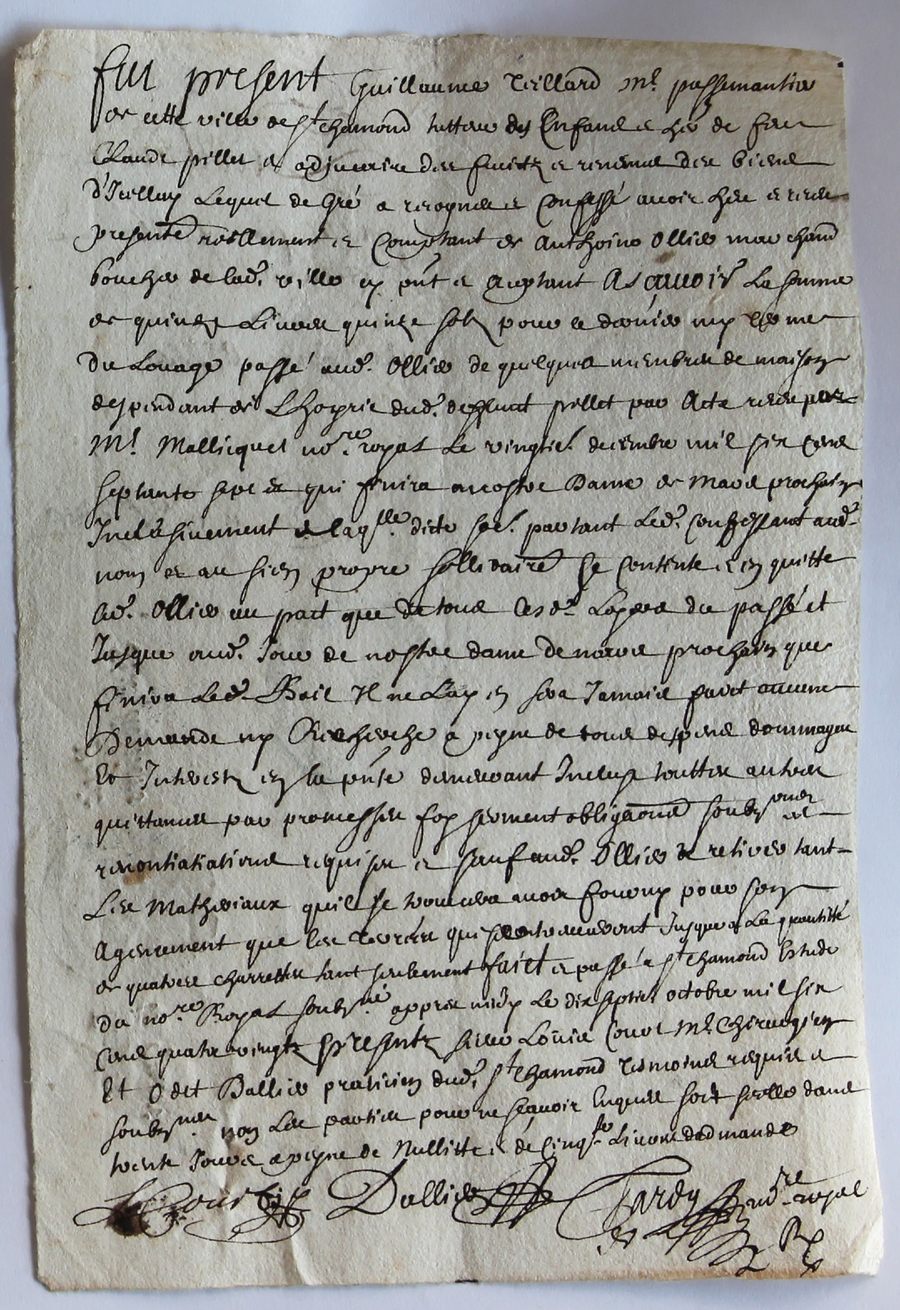 fut present Guillaume Teillard Mre passemantier
de cette ville de St chamond tutteur des Enfans & her de feu
Claude pillet & adjudicaire des fruictz & revenus des biens
d'Icelluy Lequel de Gré a recogneu & Confessé avoir heu & receu
presente reellement & Comptant de Anthoine Ollier marchand
boucher de lad. ville cy pnt & acceptant Asçavoir La somme
de quinze Livres quinze solz pour le dernier my terme
du Louage passé aud. Ollier de quelques membres de maison
despendant de L'hoyrie dud. deffunt pillet par Acte receu par
Me Mallicquet nore royal Le vingtie. decembre mil six cens
septante sept & qui finira a nostre Dame de Mars prochain
Inclusivement de laqlle dicte so.e partant Led. Confessant aud.
nom & au sien propre sollidaire se contente & en quitte
led. Ollier au pact que de tous Les d. Loyers du passé et
Jusque aud. Jour de nostre dame de mars prochain que
finira Led. Bail Il ne Luy en sera Jamais faict aucune
Demande ny Recherche a peyne de tous despens dommages
Et Interestz en la pnte demeurant Inclus touttes autres
quittances par promesses foy serment obligaons soubz ons
renontiatiations requises & sauf aud. Ollier de retirer tant
Les Matheriaux qu'il se trouvera avoir fourny pour son
Agencement que les qui se trouveront Jusque a La quantitté
de quatre charrettes tant seulement faict & passé a St chamond Estude
du nore Royal soubzné appres midy Le dix septie. octobre mil six
cens quatre vingtz presentz sieur Louis Mre Chirurgien
Et Odet Dallier praticien dud. St chamond tesmoins requis &
soubznes non Les parties pour ne sçavoir Enquis soit scelle dans
trente Jours a peyne de Nullitte & de Cinqte Livres d'admande
Dallier Tardy nore royal